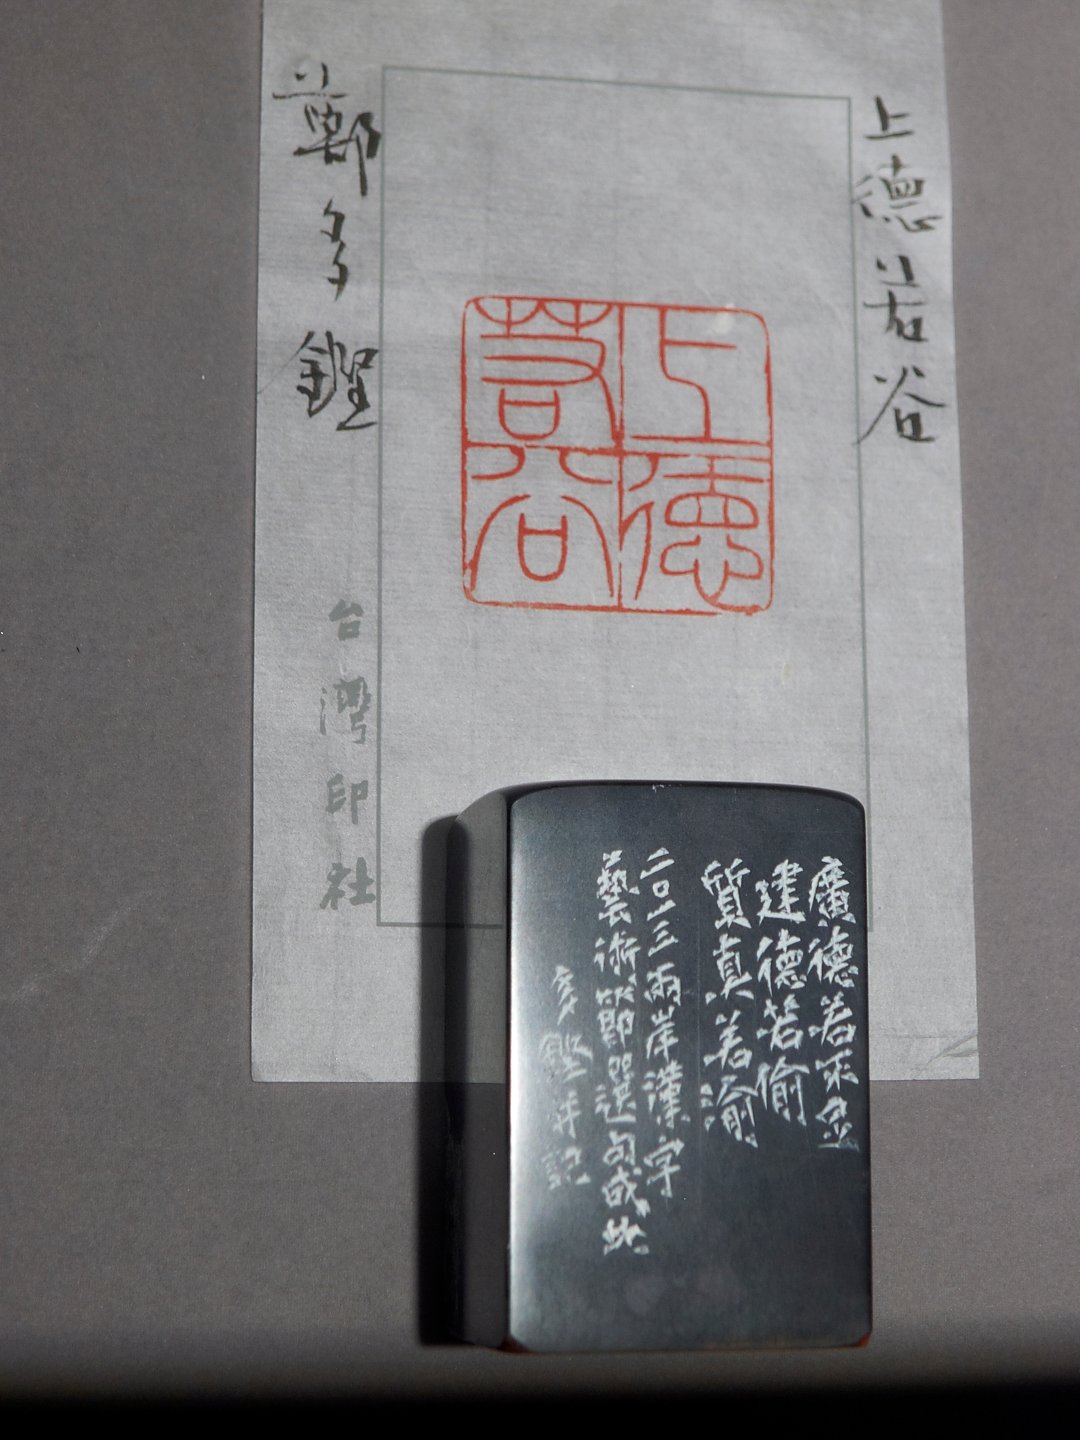 上德若谷
上德若谷
鄭多鏗
台灣印社
廣德若不足
建德若偷
質真若渝
二〇一三兩岸漢字
藝術節選句成此
多鏗并記